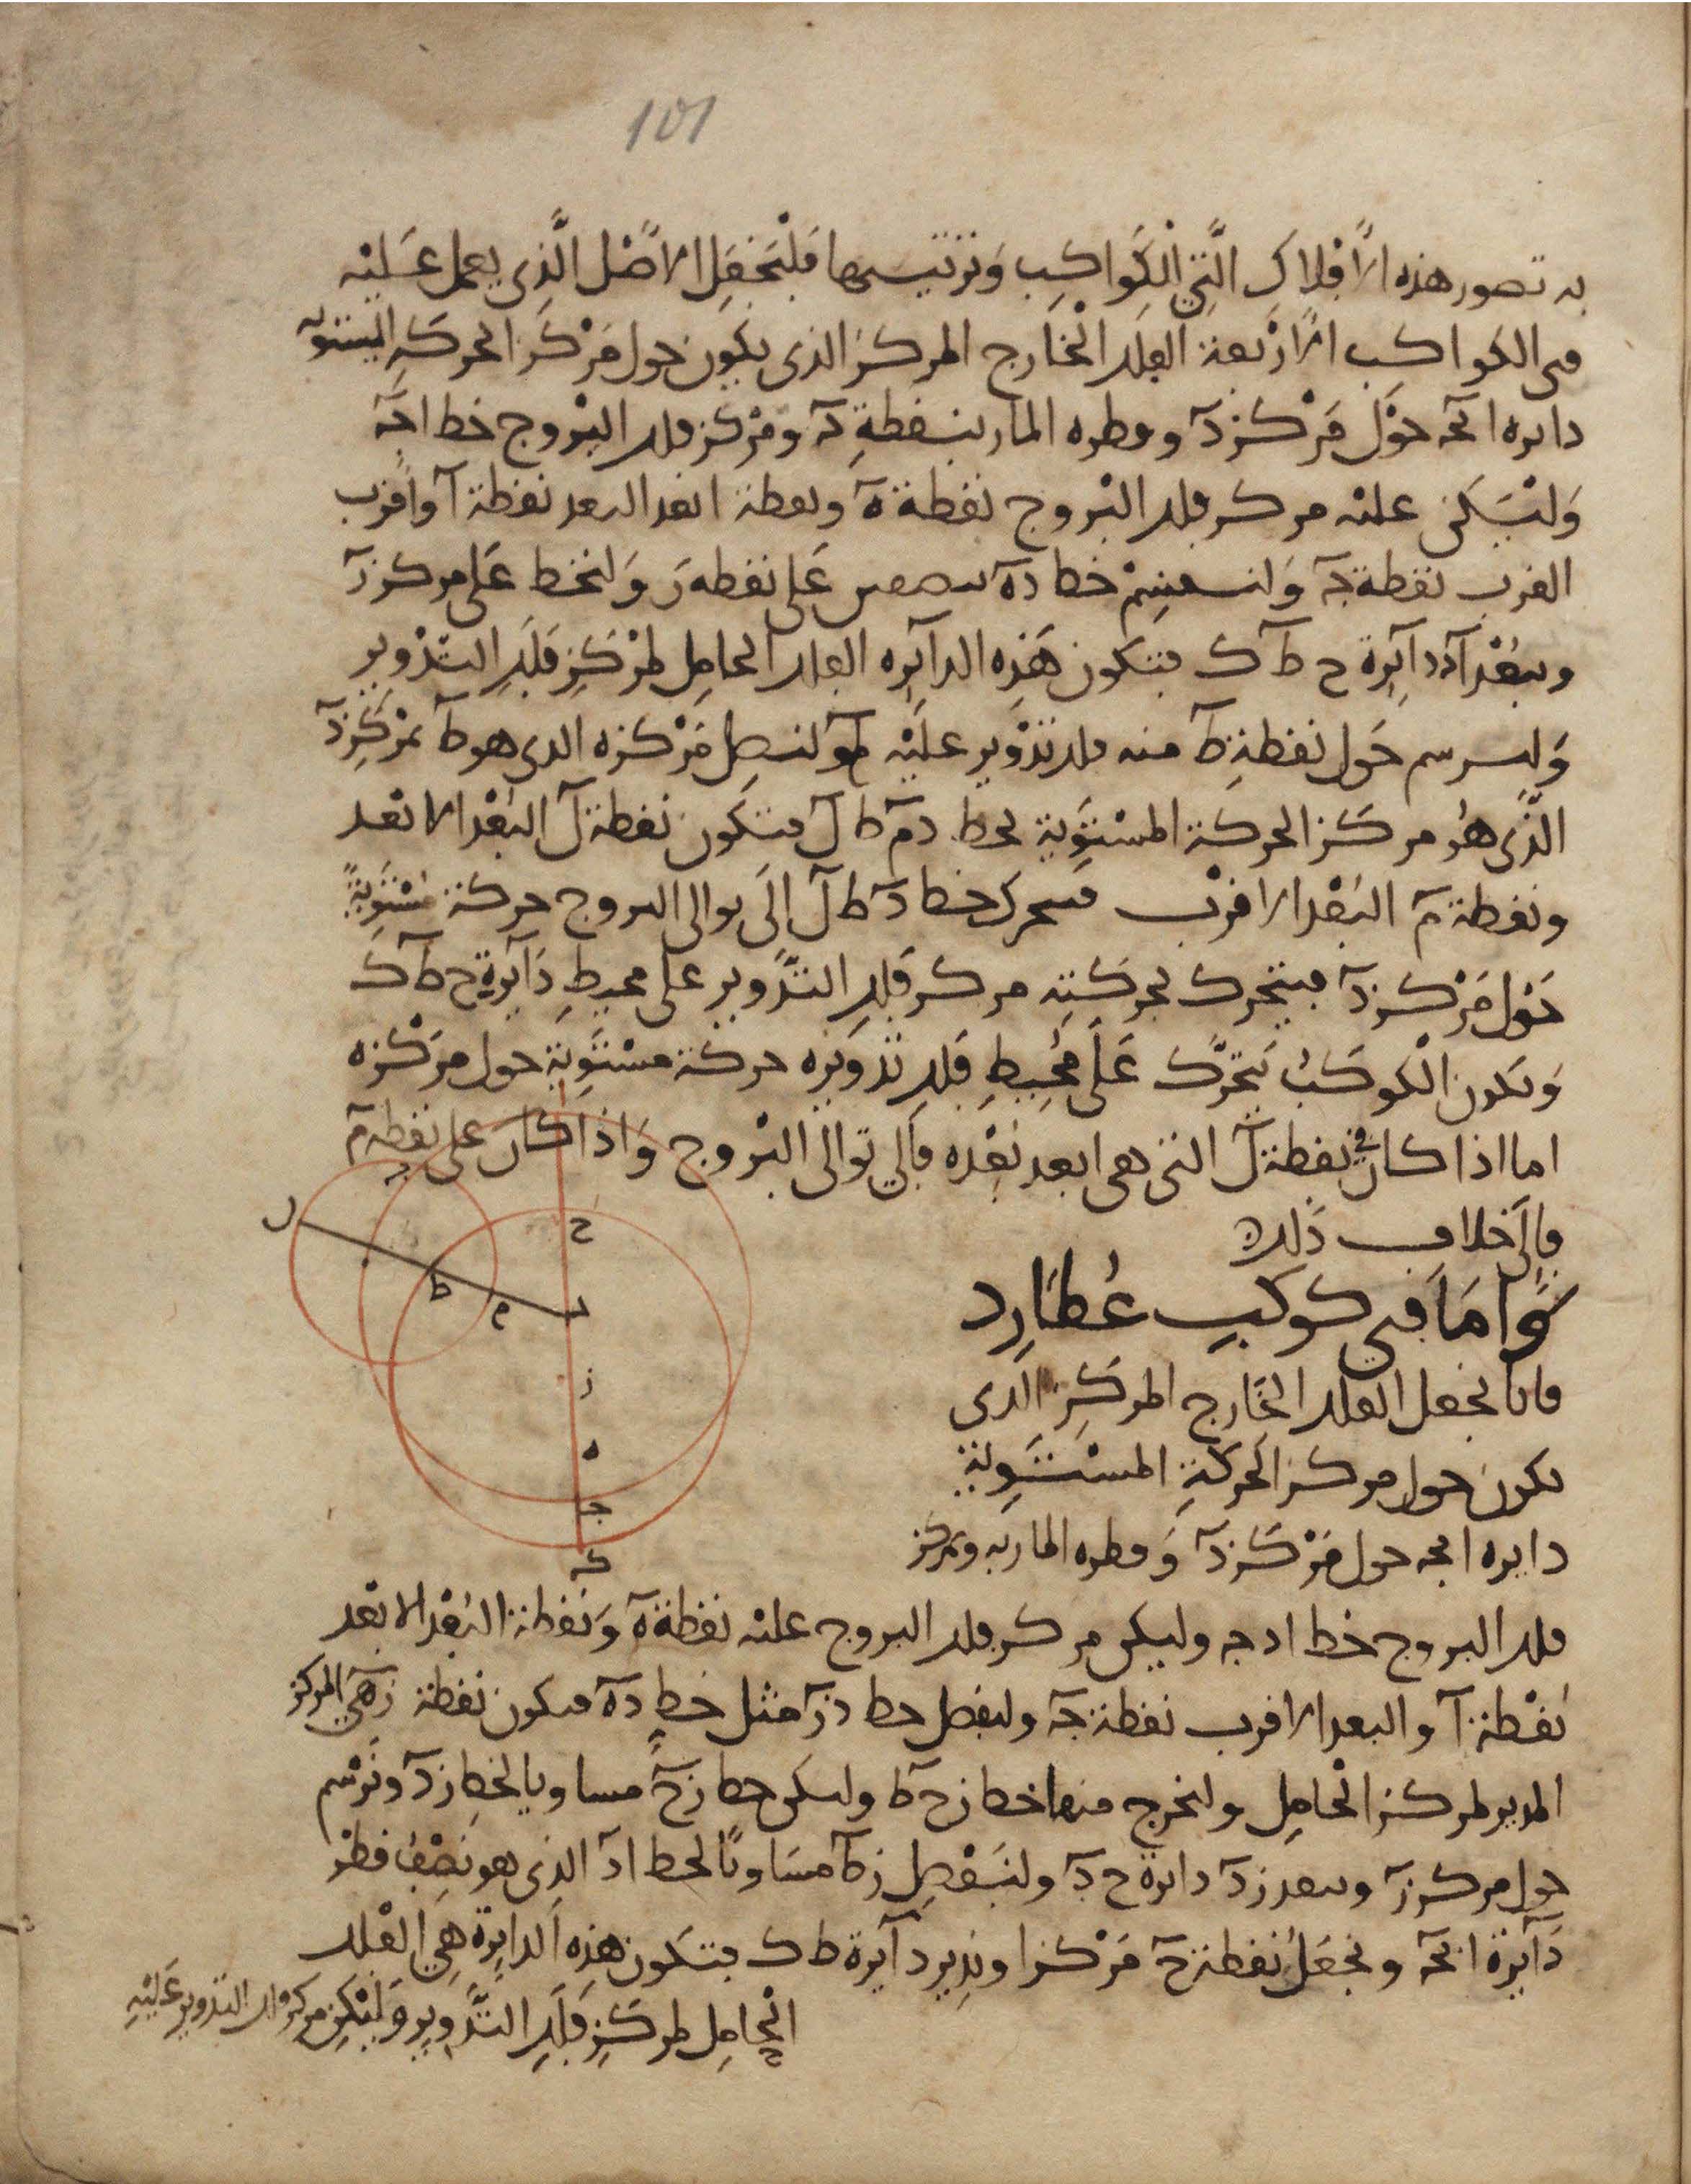 101
به تصور هذه الأفلاك التي الكواكب وترتيبها فلنجعل الأصل الذي يعمل عليه
في الكواكب الأربعة الفلك الخارج المركز الذي يكون حول مركز الحركة المستوية
دايره ابجـ حول مركز د وقطره المار بنقطة د ومركز فلك البروج خط ا جـ
وليكن عليه مركز فلك البروج نقطة ه ونقطة ابعد البعد نقطة ا واقرب
القرب نقطة جـ ولنقسم خط د ه بنصفين على نقطه ز ولنخط على مركز ز
وببعد ا د دايرة ح ط ك فتكون هذه الدايره الفلك الحامل لمركز فلك التدوير
ولنرسم حول نقطة ط منه فلك تدوير عليه ولنصل مركزه الذي هو ط بمركز د
الذي هو مركز الحركة المستوية بخط د م ط ل فتكون نقطة ل البعد الابعد
ونقطة م البعد الاقرب فيتحرك خط د ط ل الى توالي البروج حركة مستوية
حول مركز د فيتحرك بحركته مركز فلك التدوير على محيط دايرة ح ط ك
ويكون الكوكب يتحرك على محيط فلك تدويره حركة مستوية حول مركزه
اما اذا كان في نقطة ل التي هي ابعد بعده فالي توالي البروج واذا كان على نقطه م
فالى خلاف ذلك
واما في كوكب عطارد
فانا نجعل الفلك الخارج المركز الذي
يكون حول مركز الحركة المستوية
دايره ابجـ حول مركز د وقطره المار به وبمركز
فلك البروج خط ا د جـ وليكن مركز فلك البروج عليه نقطة ه ونقطة البعد الابعد
نقطة ا والبعد الاقرب نقطة جـ ولنفصل خط د ز مثل خط د ه فيكون نقطة ز هي المركز
المدير لمركز الحامل ولنخرج منها خط ز ح ط وليكن خط ز ح مساويا لخط ز د ونرسم
حول مركز ز وببعد ز د دايرة ح د ولنفصل ز ط مساويا لخط ا د الذي هو نصف قطر
دايرة ابجـ ونجعل نقطة ح مركزا وندير دايرة ط ك فتكون هذه الدايرة هي الفلك
الحامل لمركز فلك التدوير وليكن مركز فلك التدوير عليه
ا
ح
ل
ط
م
د
ز
ه
جـ
كـ